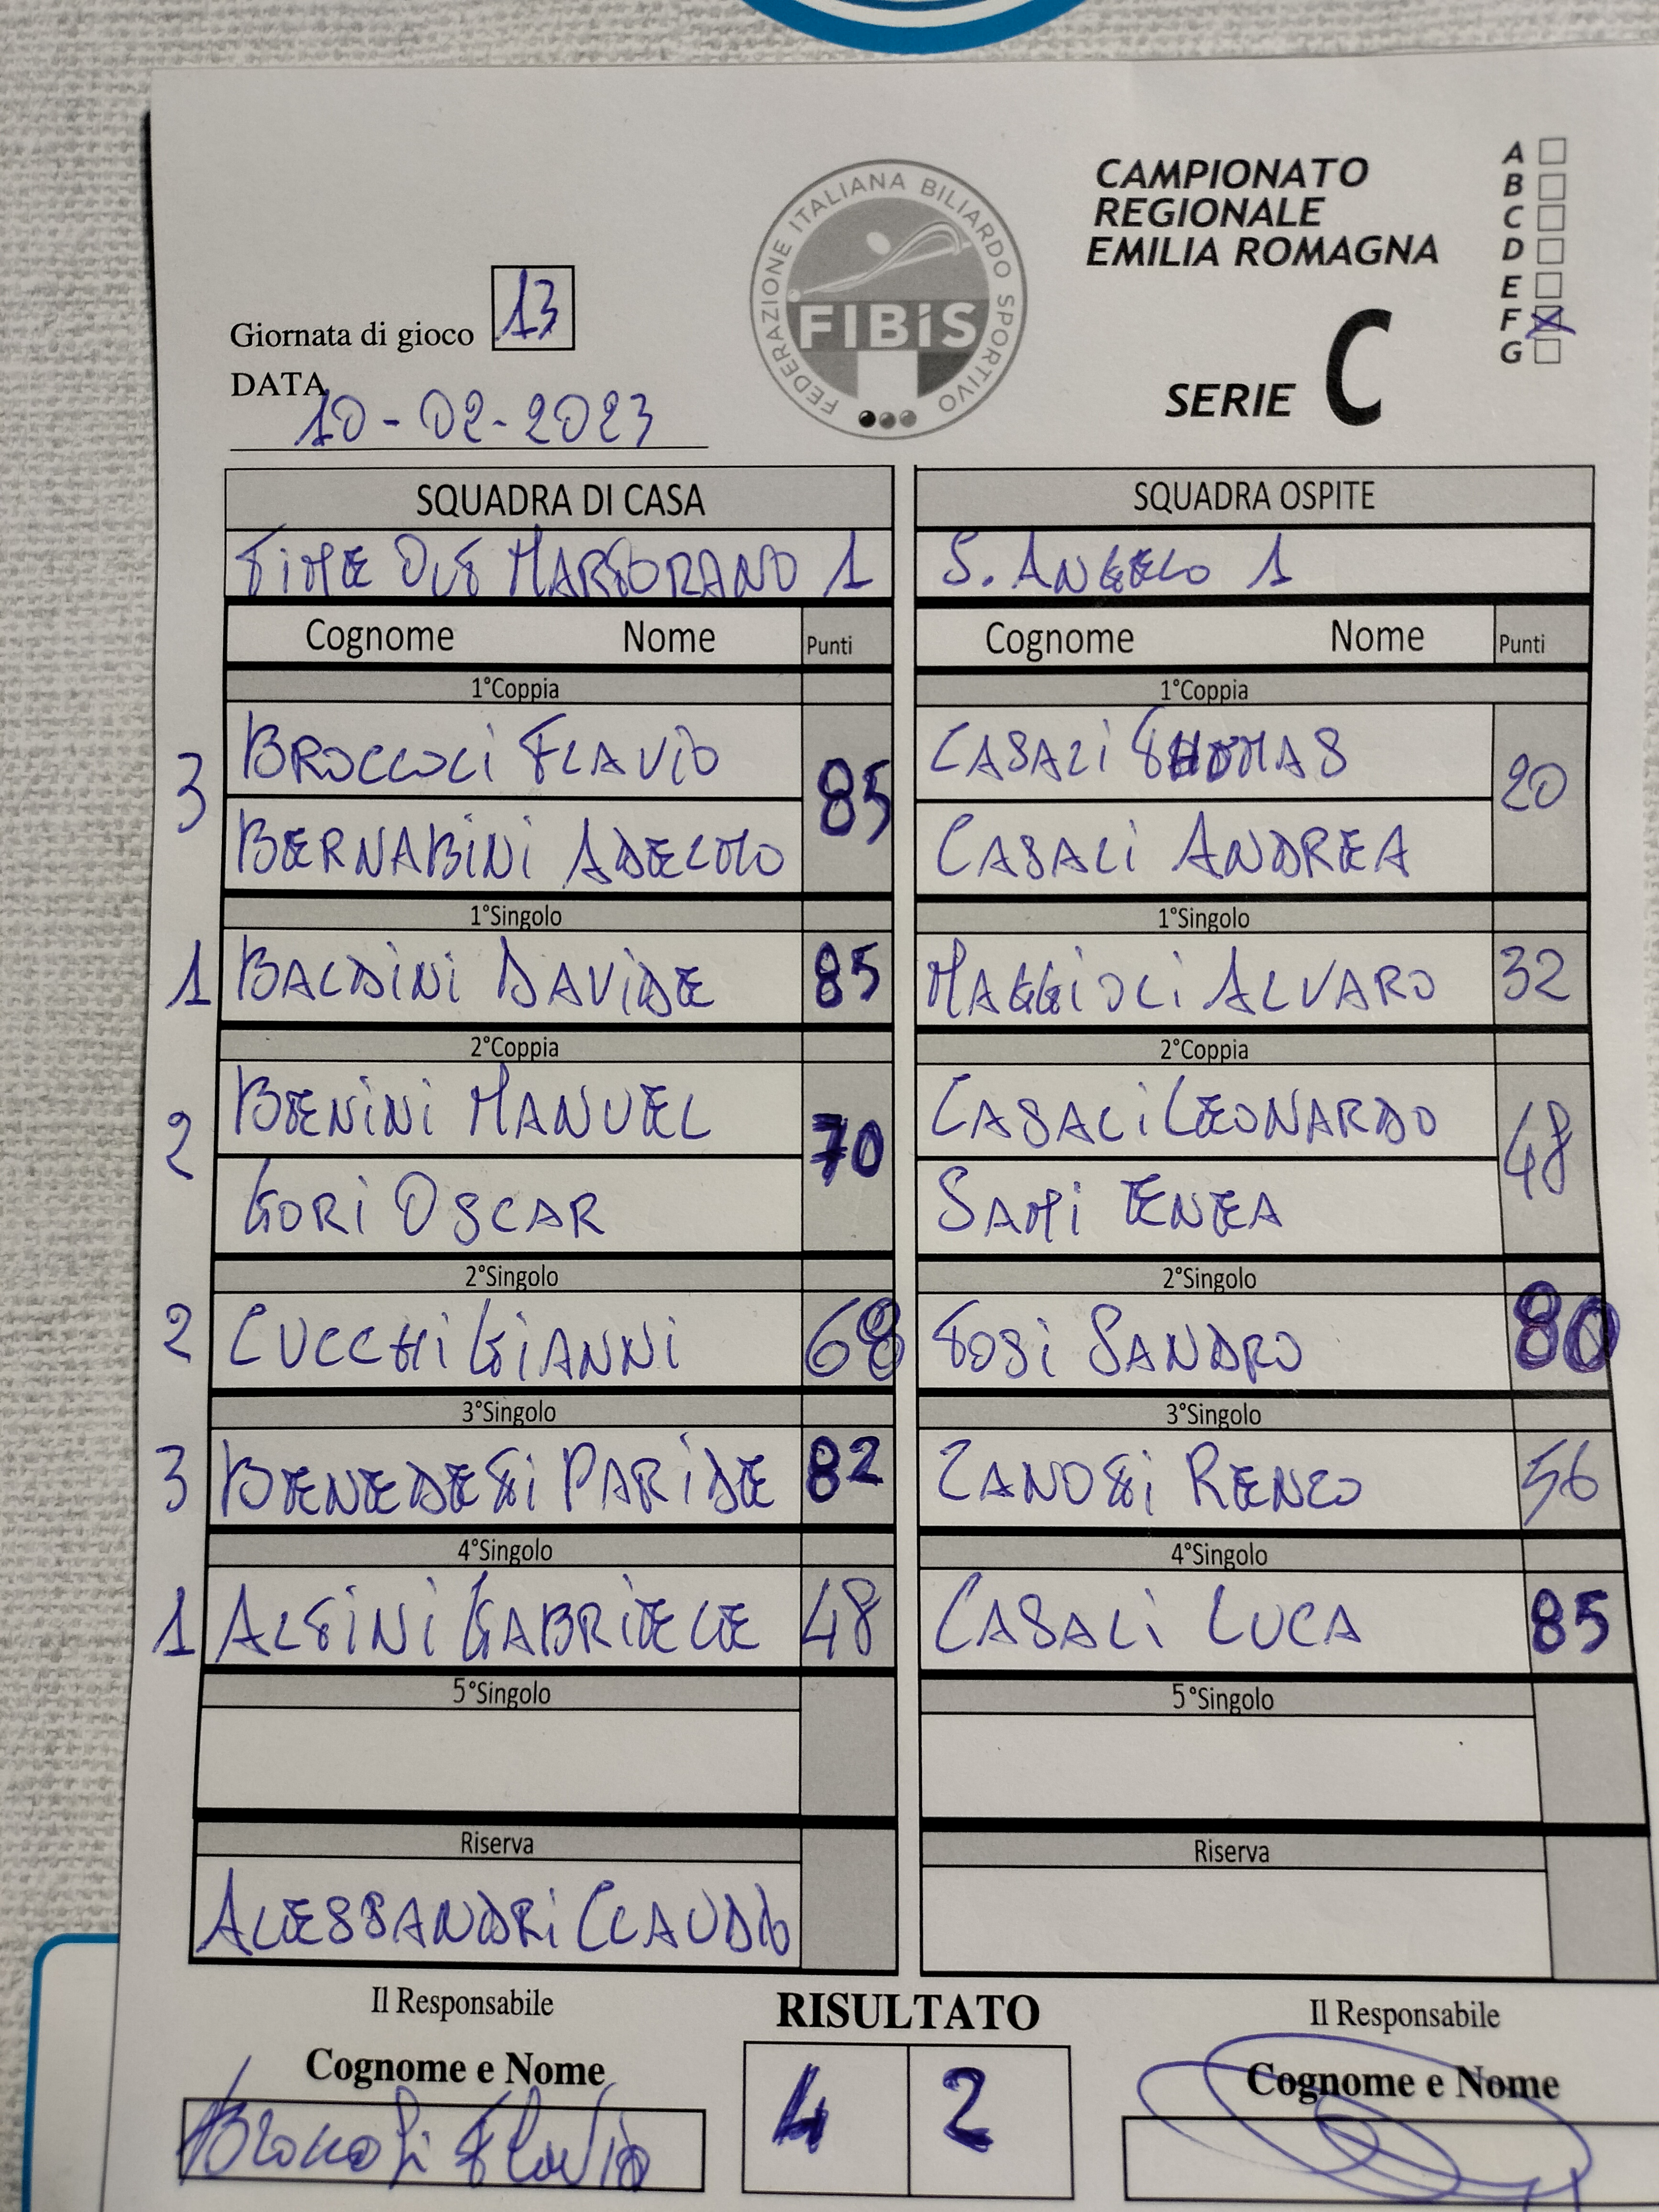 CAMPIONATO
REGIONALE
EMILIA ROMAGNA
SERIE C
A
B
C
D
E
F
G
FEDERAZIONE ITALIANA BILIARDO SPORTIVO
FIBiS
Giornata di gioco 13
DATA
10-02-2023
SQUADRA DI CASA
TIME OUT MARTORANO 1
Cognome Nome Punti
1°Coppia
3 BROCCOLI FLAVIO 85
BERNABINI ADELMO
1°Singolo
1 BALDINI DAVIDE 85
2°Coppia
2 BENINI MANUEL 70
GORI OSCAR
2°Singolo
2 CUCCHI GIANNI 68
3°Singolo
3 BENEDETTI PARIDE 82
4°Singolo
1 ALTINI GABRIELE 48
5°Singolo
Riserva
ALESSANDRI CLAUDIO
SQUADRA OSPITE
S. ANGELO 1
Cognome Nome Punti
1°Coppia
CASALI THOMAS 20
CASALI ANDREA
1°Singolo
MAGGIOLI ALVARO 32
2°Coppia
CASALI LEONARDO 48
SAMI ENEA
2°Singolo
TOSI SANDRO 80
3°Singolo
ZANOTTI RENZO 56
4°Singolo
CASALI LUCA 85
5°Singolo
Riserva
Il Responsabile
Cognome e Nome
Broccoli Flavio
RISULTATO
4 2
Il Responsabile
Cognome e Nome